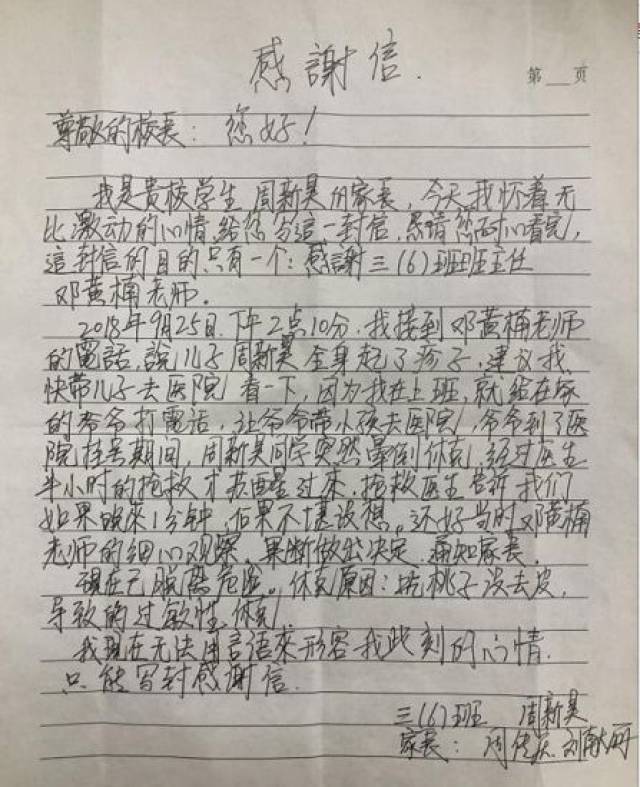 感謝信.
第 页
尊敬的校長：您好！
我是贵校学生 周新昊的家長，今天我怀着无
比激动的心情给您写這一封信，恳請您耐心看完，
這封信的目的只有一个：感謝三(6)班班主任
邓黄楠老师.
2018年9月25日.下午2点10分.我接到邓黄楠老师
的電話，說儿子周新昊全身起了疹子，建议我
快带儿子去医院看一下，因为我在上班，就给在家
的爷爷打電话，让爷爷带小孩去医院，爷爷到了医
院挂号期间，周新昊同学突然暈倒休克，经过医生
半小时的抢救才苏醒过来，抢救医生告訴我们
如果晚来1分钟，后果不堪设想。还好当时邓黄楠
老师的细心观察，果断做出决定，通知家長，
現在已脱离危险。休克原因：吃桃子没去皮，
导致的过敏性休克，
我現在无法用言语來形容我此刻的心情.
只能写封感谢信.
三(6)班 周新昊
家長： 刘献丽